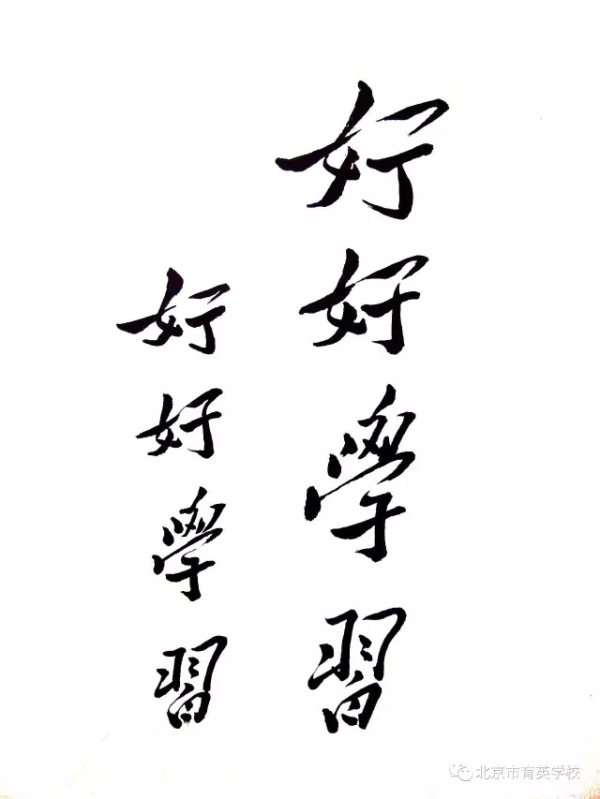 好好學習
好好學習
北京市育英学校